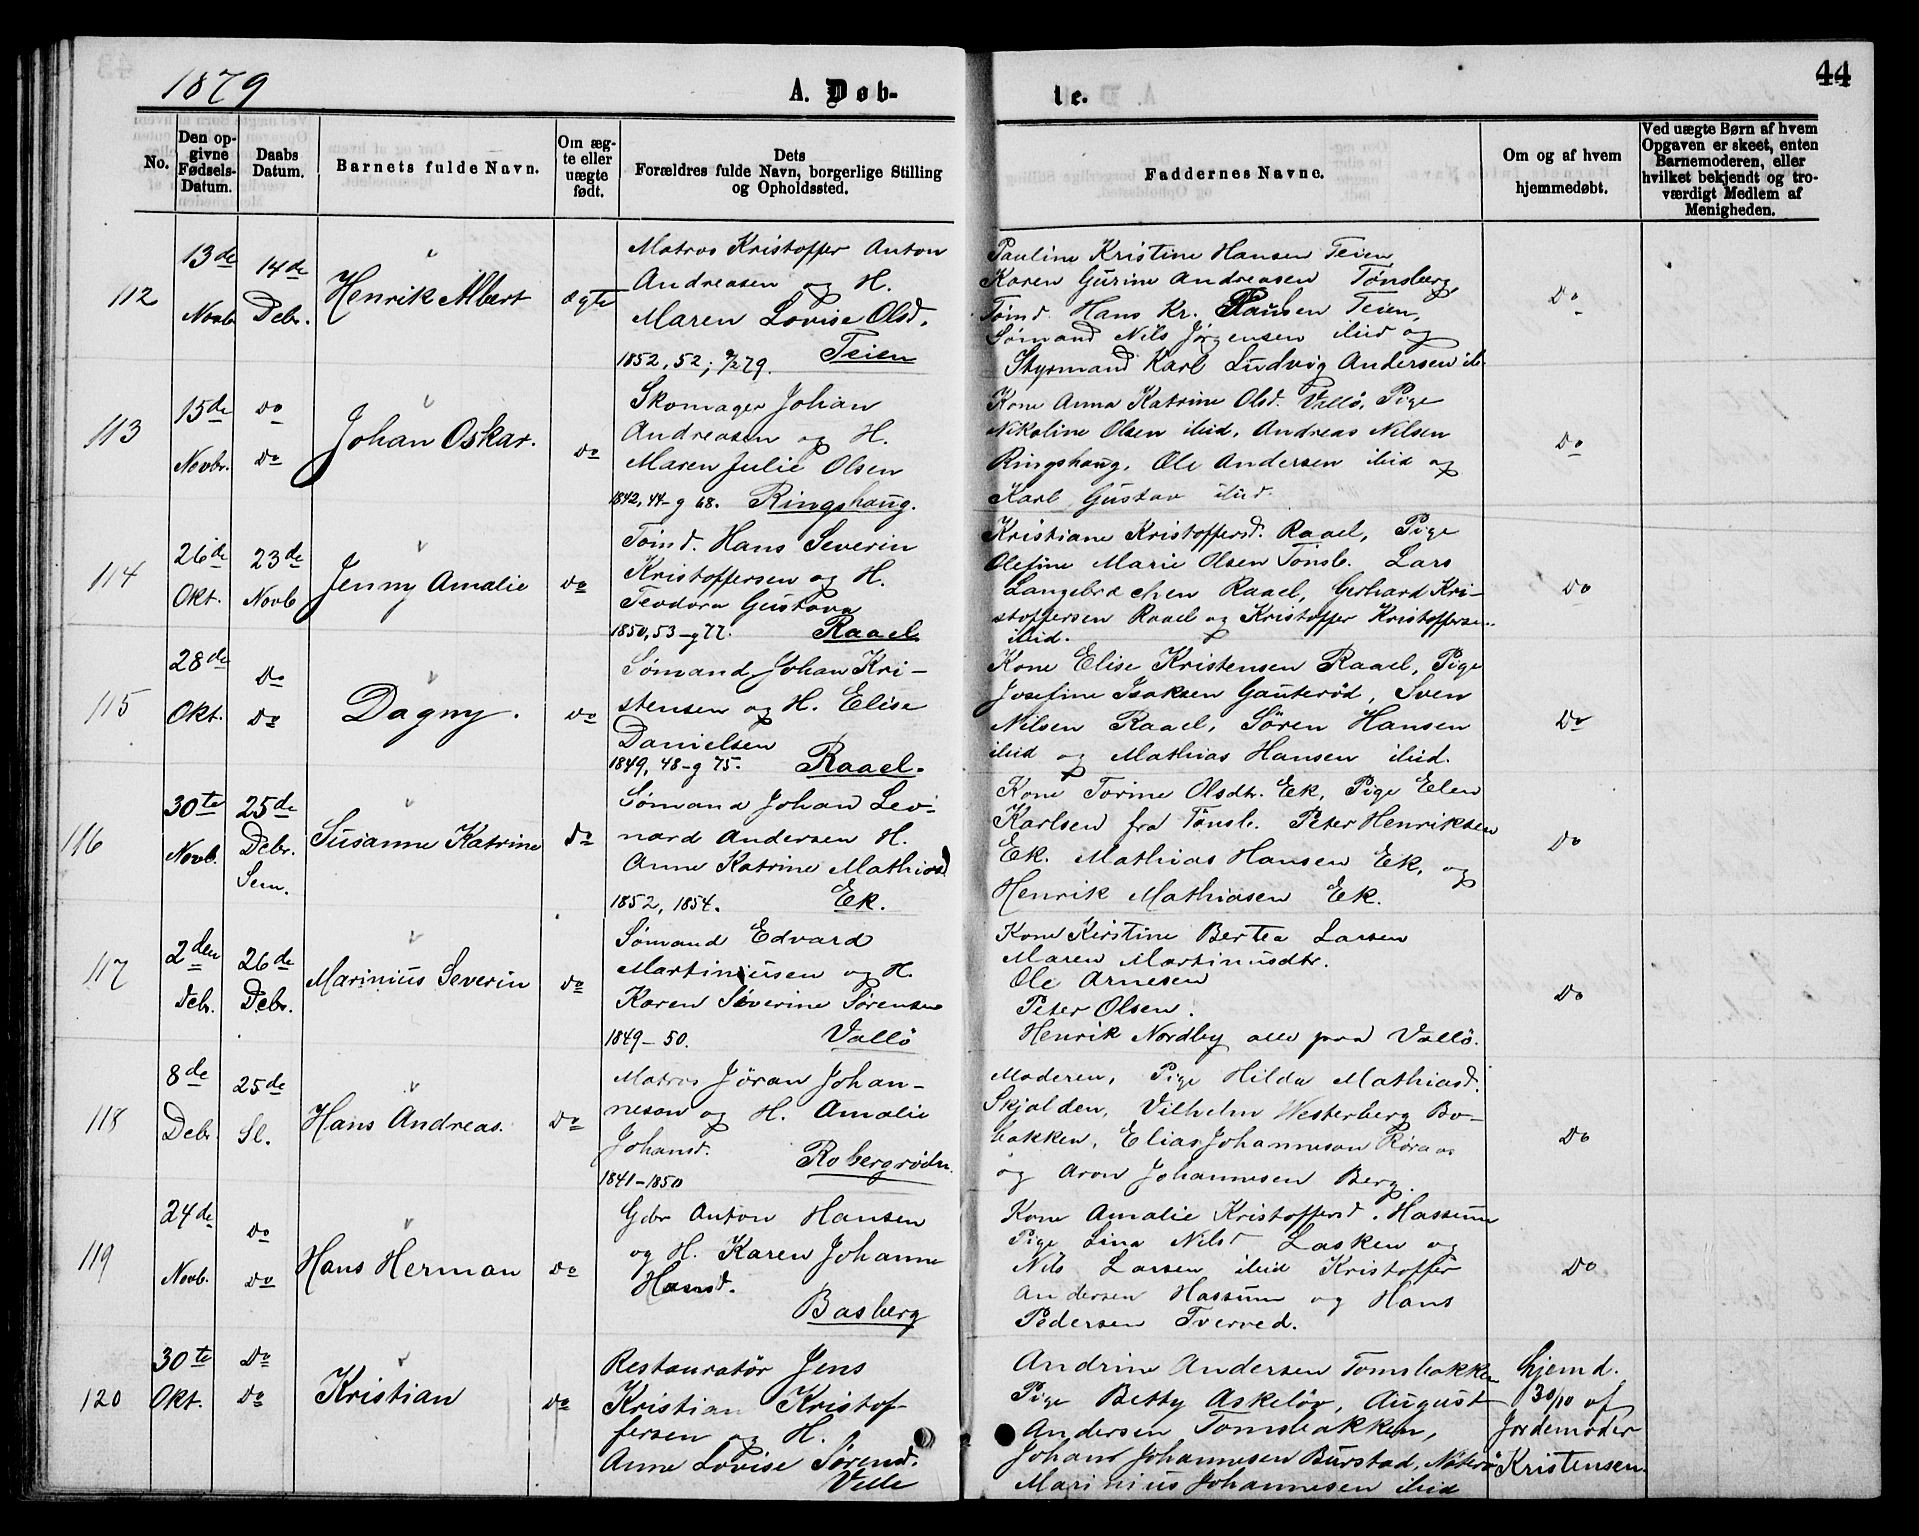 1879
A. Døb-
te.
44
No.
Den op-
givne
Fødsels-
Datum.
Daabs
Datum.
Barnets fulde Navn.
Om æg-
te eller
uægte
født.
Dets
Forældres fulde Navn, borgerlige Stilling
og Opholdssted.
Faddernes Navne.
Om og af hvem
hjemmedøbt.
Ved uægte Børn af hvem
Opgaven er skeet, enten
Barnemoderen, eller
hvilket bekjendt og tro-
værdigt Medlem af
Menigheden.
112
13de
Novb
14de
Debr.
Henrik Albert
ægte
Matros Kristoffer Anton
Andreasen og H.
Maren Lovise Olsd.
1852, 52; 9/2 79. Teien
Pauline Kristine Hansen Teien
Karen Gurine Andreasen Tønsberg
Tømd. Hans Kr. Paulsen Teien,
Sømand Nils Jørgensen ibid og
Styrmand Karl Ludvig Andersen ib.
Do
113
15de
Novbr.
Do
Do
Johan Oskar.
Do
Skomager Johan
Andreasen og H.
Maren Julie Olsen
1842, 44 - g 68. Ringshaug.
Kone Anna Katrine Olsd. Vallö, Pige
Nikoline Olsen ibid, Andreas Nilsen
Ringshaug, Ole Andersen ibid og
Karl Gustav ibid.
Do
114
26de
Okt.
23de
Novb
Jenny Amalie
Do
Tømd. Hans Severin
Kristoffersen og H.
Teodora Gustava
1850, 53 - g 77. Raael
Kristiane Kristoffersd. Raael, Pige
Olefine Marie Olsen Tönsb. Lars
Langebrechen Raael, Gerhard Kri-
stoffersen Raael og Kristoffer Kristoffersen
ibid.
Do
115
28de
Okt.
Do
Do
Dagny.
Do
Sømand Johan Kri-
stensen og H. Elise
Danielsen
1849, 48 - g 75. Raael.
Kone Elise Kristensen Raael, Pige
Josefine Isaksen Gauterød, Sven
Nilsen Raael, Sören Hansen
ibid og Mathias Hansen ibid.
Do
116
30te
Novb.
25de
Debr.
Sem.
Susanne Katrine
Do
Sømand Johan Leo-
nard Andersen H.
Anne Katrine Mathiasd
1852, 1854. Ek.
Kone Torine Olsdtr. Ek, Pige Elen
Karlsen fra Tönsb. Peter Henriksen
Ek. Mathias Hansen Ek, og
Henrik Mathiasen Ek.
Do
117
2den
Debr.
26de
Debr.
Marinius Severin
Do
Sømand Edvard
Martiniusen og H.
Karen Severine Sørensen
1849 - 50. Vallö
Kone Kirstine Bertea Larsen
Maren Martinusdtr.
Ole Arnesen
Peter Olsen.
Henrik Nordby alle paa Vallö.
Do
118
8de
Debr.
25de
Sl.
Hans Andreas.
Do
Matros Jöran Johan-
neson og H. Amalie
Johansd.
1841 - 1850 Robergrødn.
Moderen, Pige Hilda Mathiasd.
Skjalden, Vilhelm Westerberg Bo-
bakken, Elias Johanneson Röraas
og Aron Johannesen Berg.
Do
119
24de
Novb.
Do
Do
Hans Herman
Do
Gbr Anton Hansen
og H. Karen Johanne
Hansd.
Basberg
Kone Amalie Kristoffersd. Hassum
Pige Lina Nilsd Lasken og
Nils Larsen ibid Kristoffer
Andersen Hassum og Hans
Pedersen Tverved.
Do
120
30te
Okt.
Do
Do
Kristian
Do
Restauratör Jens
Kristian Kristof-
fersen og H.
Anne Lovise Sørensd.
Velle
Andrine Andersen Tomsbakken
Pige Betty Askelöv, August
Andersen Tomsbakken,
Johans Johannesen Burstad, Nøterö
Marinius Johannesen ibid
Hjemd.
30/10 af
Jordemoder
Kristensen.